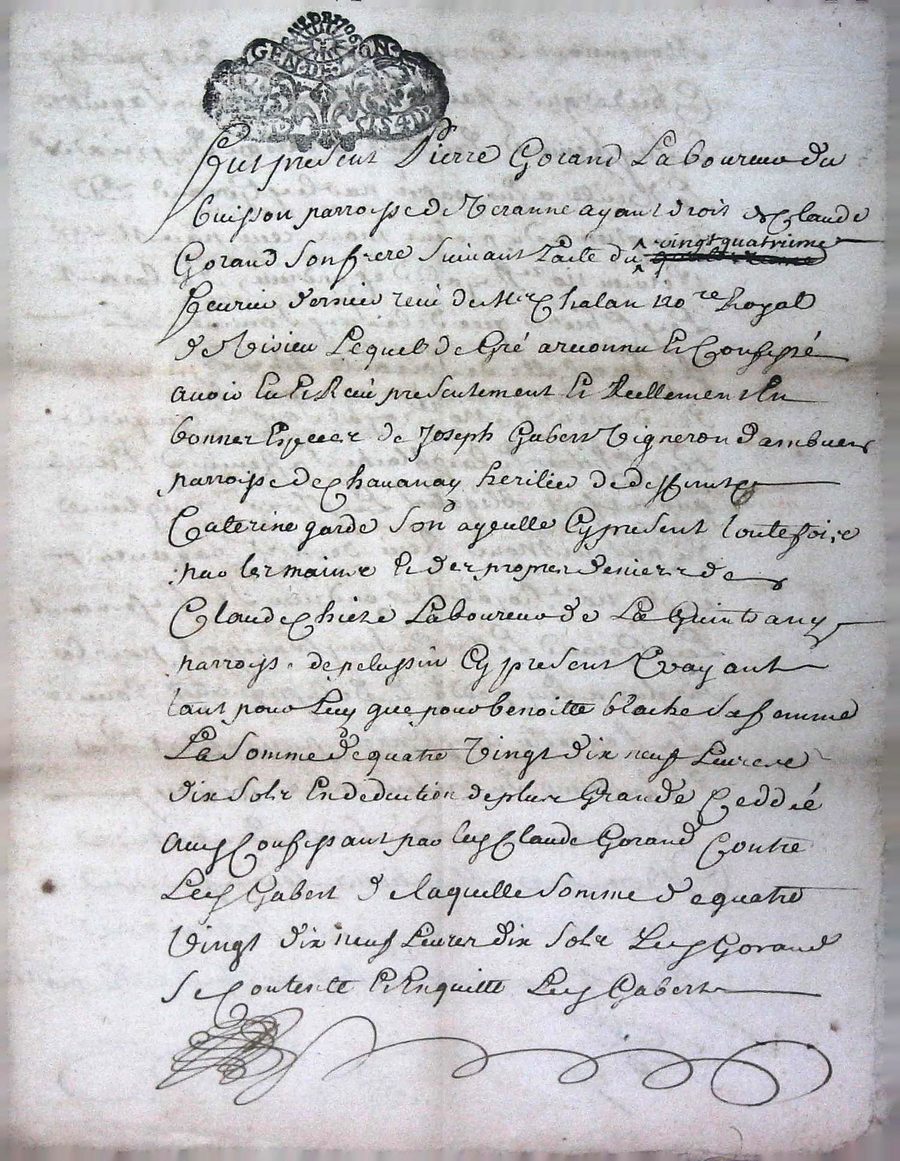 GEN. DE LION
Fut present Pierre Gorand Laboureur du
buisson parroisse de Veranne ayant droit de Claude
Gorand son frere suivant lacte du vingt quatrieme
fevrier dernier receu de Mr Chalan no.re Royal
de Virieu Lequel de Gré a reconnu et Confessé
avoir eu et Receu presentement et Reellement En
bonnes Especes de Joseph Gabert Vigneron dambuens
parroisse de Chavanay heritier de deffunte
Caterine garde son ayeulle Cy present toutefois
par les mains et des propres deniers de
Claude Chieze Laboureur de La Guintany
parroisse de pelussin Cy present Et payant
tant pour Luy que pour benoitte blache sa femme
La somme de quatre Vingt dix neuf Livres
dix sols En deduction de plus Grande Ceddée
aud Confessant par led Claude Gorand Contre
Led Gabert de laquelle somme de quatre
Vingt dix neuf Livres dix sols Led Gorand
se Contente et Enquitte Led Gabert